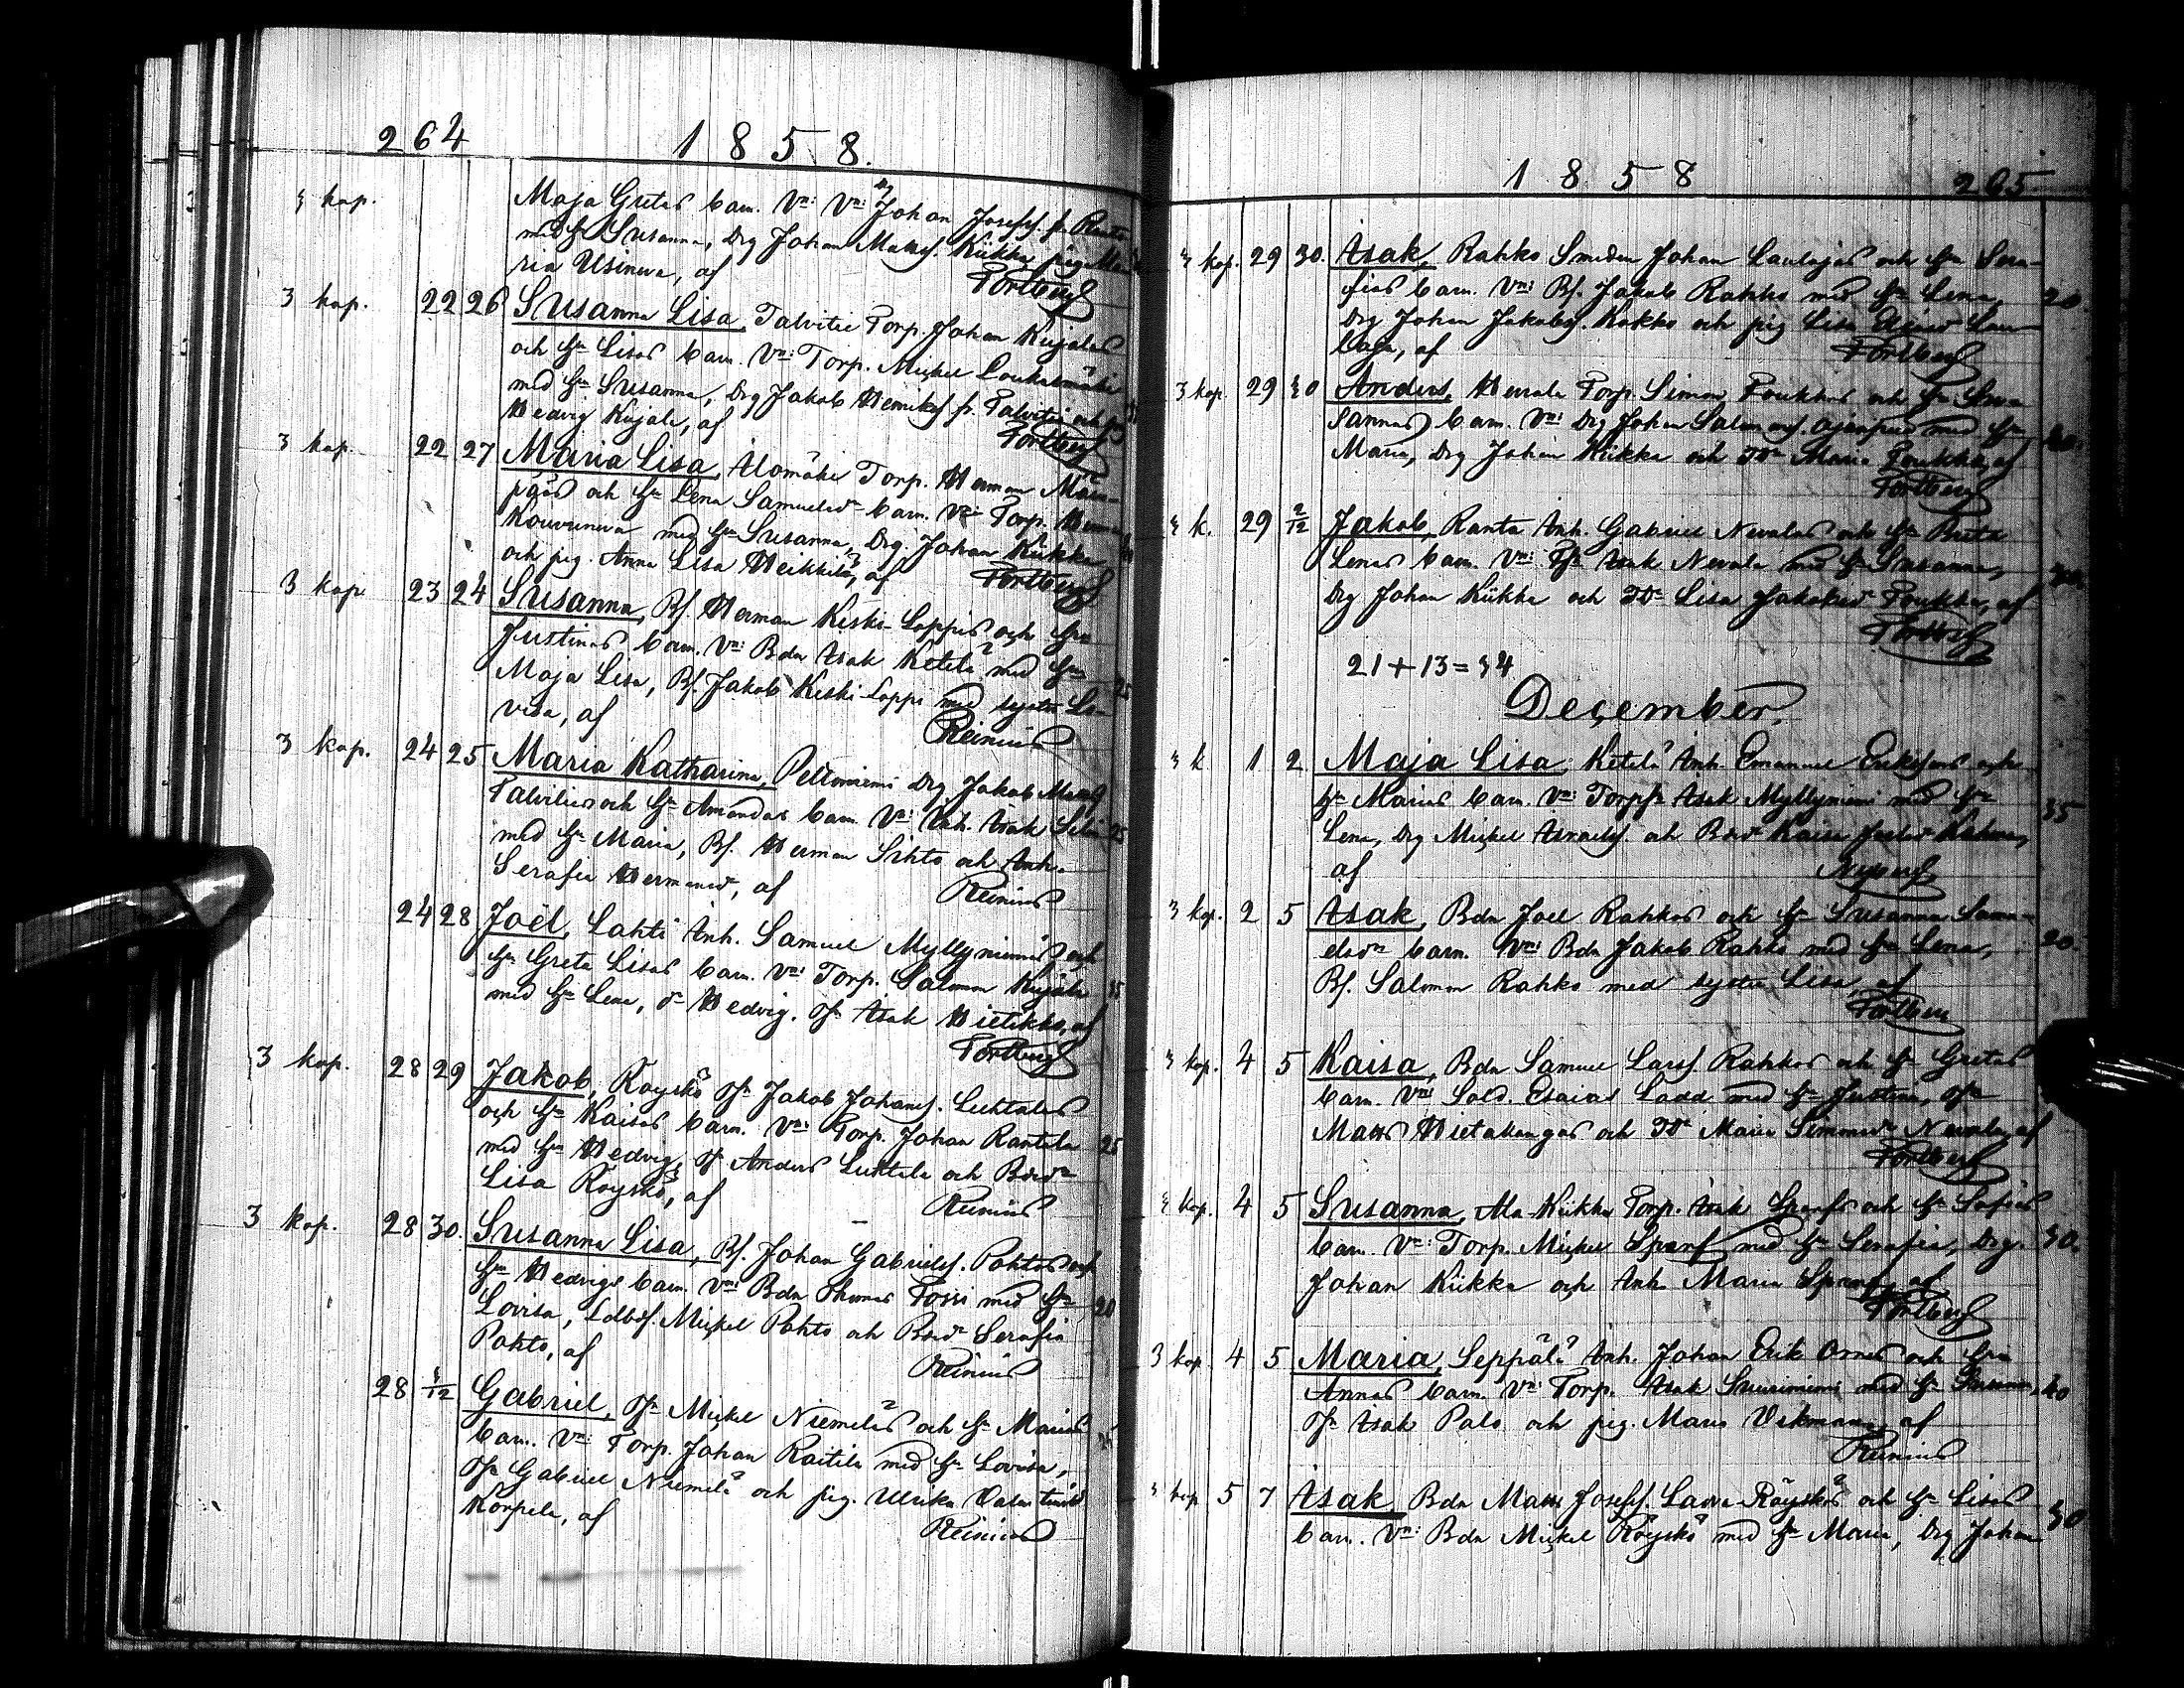 264 1858.
3 kop. Maja Gretas barn. Vn: Vn: Drg Johan Josefss. fr. Ranta
med H. Susanna, Drg Johan Matss. Kiikka pig. Ma-
ria Usinwa, af Portberg
3 kop. 22 26 Susanna Lisa, Talvitie Torp. Johan Kujalas
och Hu Lisas barn. Vn: Torp. Michel Loukasmäki
med Hu Susanna, Drg Jakob Henrikss. fr. Talvitie och p.
Hedvig Kujala, af Portberg
3 kop. 22 27 Maria Lisa, Alomäki Torp. Herman
och Hu Lena Samuelsdr barn. Vn: Torp. Herman
Kouvuneva med Hu Susanna, Drg. Johan Kiikka
och pig. Anna Lisa Heikkilä, af Portberg
3 kop 23 24 Susanna, Bs. Herman Keski-Loppis och Hu
Justinas barn. Vn: Bdn Isak Ketelä med Hu
Maja Lisa, Bs. Jakob Keski-Loppi med syster Lo- 25
visa, af Reinius
3 kop. 24 25 Maria Katharina, Peltoniemi Drg Jakob Matss
Talvities och Hu Amandas barn. Vn: Inh. Isak 25
med Hu Maria, Bs. Herman Sihto och Inh.
Serafia Hermansdr, af Reinius
24 28 Joël, Lahti Inh. Samuel Myllyniemis och
Hu Greta Lisas barn. Vn: Torp. Salomon Kujala 35
med Hu Lena, dr Hedvig. Ofn Isak Hietikko, af
Portberg
3 kop. 28 29 Jakob, Röyskö Ofn Jakob Johanss. Luhtalas
och Hu Kaisas barn. Vn: Torp. Johan Rantala 25
med Hu Hedvig, Of Anders Luhtala och Bdrdr
Lisa Röyskö, af Reinius
3 kop. 28 30. Susanna Lisa, Bs. Johan Gabrielss. Pohtos och
Hu Hedvigs barn. Vn: Bdn Thomas Possi med Hu 20
Lovisa, Ldbds. Michel Pohto och Bdrdr Serafia
Pohto, af Reinius
28 3/12 Gabriel, Ofn Michel Niemeläs och Hu Marias
barn. Vn: Torp. Johan Raitila med Hu Lovisa,
Ofn Gabriel Niemelä och pig. Ulrika Valentinsd
Korpela, af Reinius
1858 265.
3 kop. 29 30. Isak, Rahko Smeden Johan Laulajas och Hu Sera-
fias barn. Vn: Bs. Jakob Rahko med Hu Lena, 20
Drg Johan Jakobss. Kokko och pig Lisa Lau-
laja, af Portberg
3 kop. 29 30 Anders, Hevala Torp. Simon Poukkas och Hu Su-
sannas barn. Vn: Drg Johan Salomonss. med Hu
Maria, Drg Johan Kiikka och Tdr Maria Poukka, af
Portberg
3 k. 29 2/12 Jakob, Ranta Inh. Gabriel Nevalas och Hu Brita
Lenas barn. Vn: Ofn Isak Nevala med Hu Susanna,
Drg Johan Kiikka och Tdr Lisa Jakobsdr Poukka, af
Portberg
21+13=34
December.
3 k 1 2 Maja Lisa, Ketelä Inh. Emanuel Erikssons och
Hu Marias barn. Vn: Torpn Isak Myllyniemi med Hu 35
Lena, Drg Michel Israelss. och Bdrdr Kaisa Joelsdr
af Nyberg
3 kop. 2 5 Isak, Bdn Joel Rahkos och Hu Susanna Samu-
elsdrs barn. Vn: Bdn Jakob Rahko med Hu Lena, 20.
Bs. Salomon Rahko med syster Lisa, af
Portberg
3 kop. 4 5 Kaisa, Bdn Samuel Larss. Rahkos och Hu Gretas
barn. Vn: Sold. Esaias Ladd med Hu Justina, Ofn
Matts Hietakangas och Tdr Maria Simonsdr Nevala, af
Portberg
3 kop. 4 5 Susanna, Ala-Kiikka Torp. Isak Sparfs och Hu Sofias
barn. Vn: Torp. Michel Sparf med Hu Serafia, Drg. 30.
Johan Kiikka och Inh. Maria Sparf, af
Portberg
3 kop. 4 5 Maria, Seppälä Inh. Johan Erik Ornes och Hu
Annas barn. Vn: Torp. Isak Suuriniemi med Hu Susanna, 40
Ofn Isak Palo och pig. Maria Vikman, af
Reinius
3 kop 5 7 Isak, Bdn Matts Josefss. Röyskös och Hu Lisas 30
barn. Vn: Bdn Michel Röyskö med Hu Maria, Drg Johan